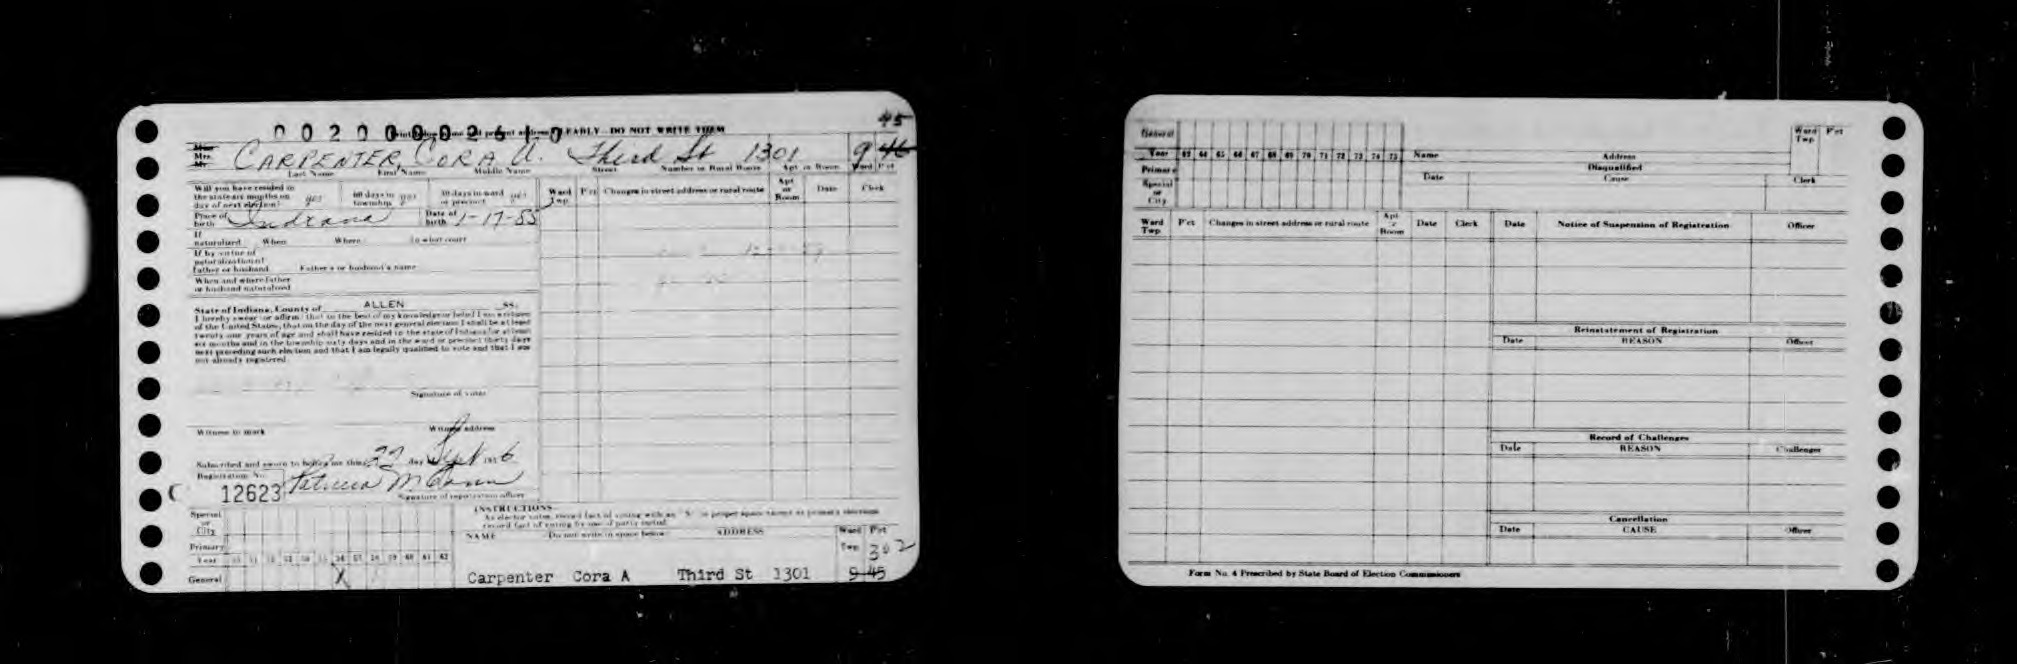 45
00200002610
CLEARLY—DO NOT WRITE THEM
Miss
Mrs.
Mr.
CARPENTER, CORA A. Third St 1301 9 46
Last Name First Name Middle Name Street Number or Rural Route Apt or Room Ward P'ct
Will you have resided in
the state six months on
day of next election? yes 60 days in township yes 30 days in ward or precinct yes
Place of birth Indiana Date of birth 1-17-83
If
naturalized When Where In what court
If by virtue of
naturalization of
father or husband Father's or husband's name
When and where father
or husband naturalized
State of Indiana, County of ALLEN SS.
I hereby swear or affirm that to the best of my knowledge or belief I am a citizen
of the United States, that on the day of the next general election I shall be at least
twenty-one years of age and shall have resided in the state of Indiana for at least
six months and in the township sixty days and in the ward or precinct thirty days
next preceding such election and that I am legally qualified to vote and that I am
not already registered.
Signature of voter
Witness to mark Witness address
Subscribed and sworn to before me this 22 day Sept 1956
Registration No.
12623 Patricia McCann
Signature of registration officer
Ward Twp. P'ct Changes in street address or rural route Apt or Room Date Clerk
Special
or
City
Primary
Year 56 57 58 59 60 61 62
General X
INSTRUCTIONS
As elector votes, record fact of voting with an "X" in proper space except at primary elections
record fact of voting by use of party initial.
NAME Do not write in space below ADDRESS Ward P'ct
Twp 302
Carpenter Cora A Third St 1301 9-45
General
Year 63 64 65 66 67 68 69 70 71 72 73 74 75
Primary
Special
or
City
Name Address
Ward Twp. P'ct
Disqualified
Date Cause Clerk
Ward Twp. P'ct Changes in street address or rural route Apt or Room Date Clerk
Date Notice of Suspension of Registration Officer
Reinstatement of Registration
Date REASON Officer
Record of Challenges
Date REASON Challenger
Cancellation
Date CAUSE Officer
Form No. 4 Prescribed by State Board of Election Commissioners